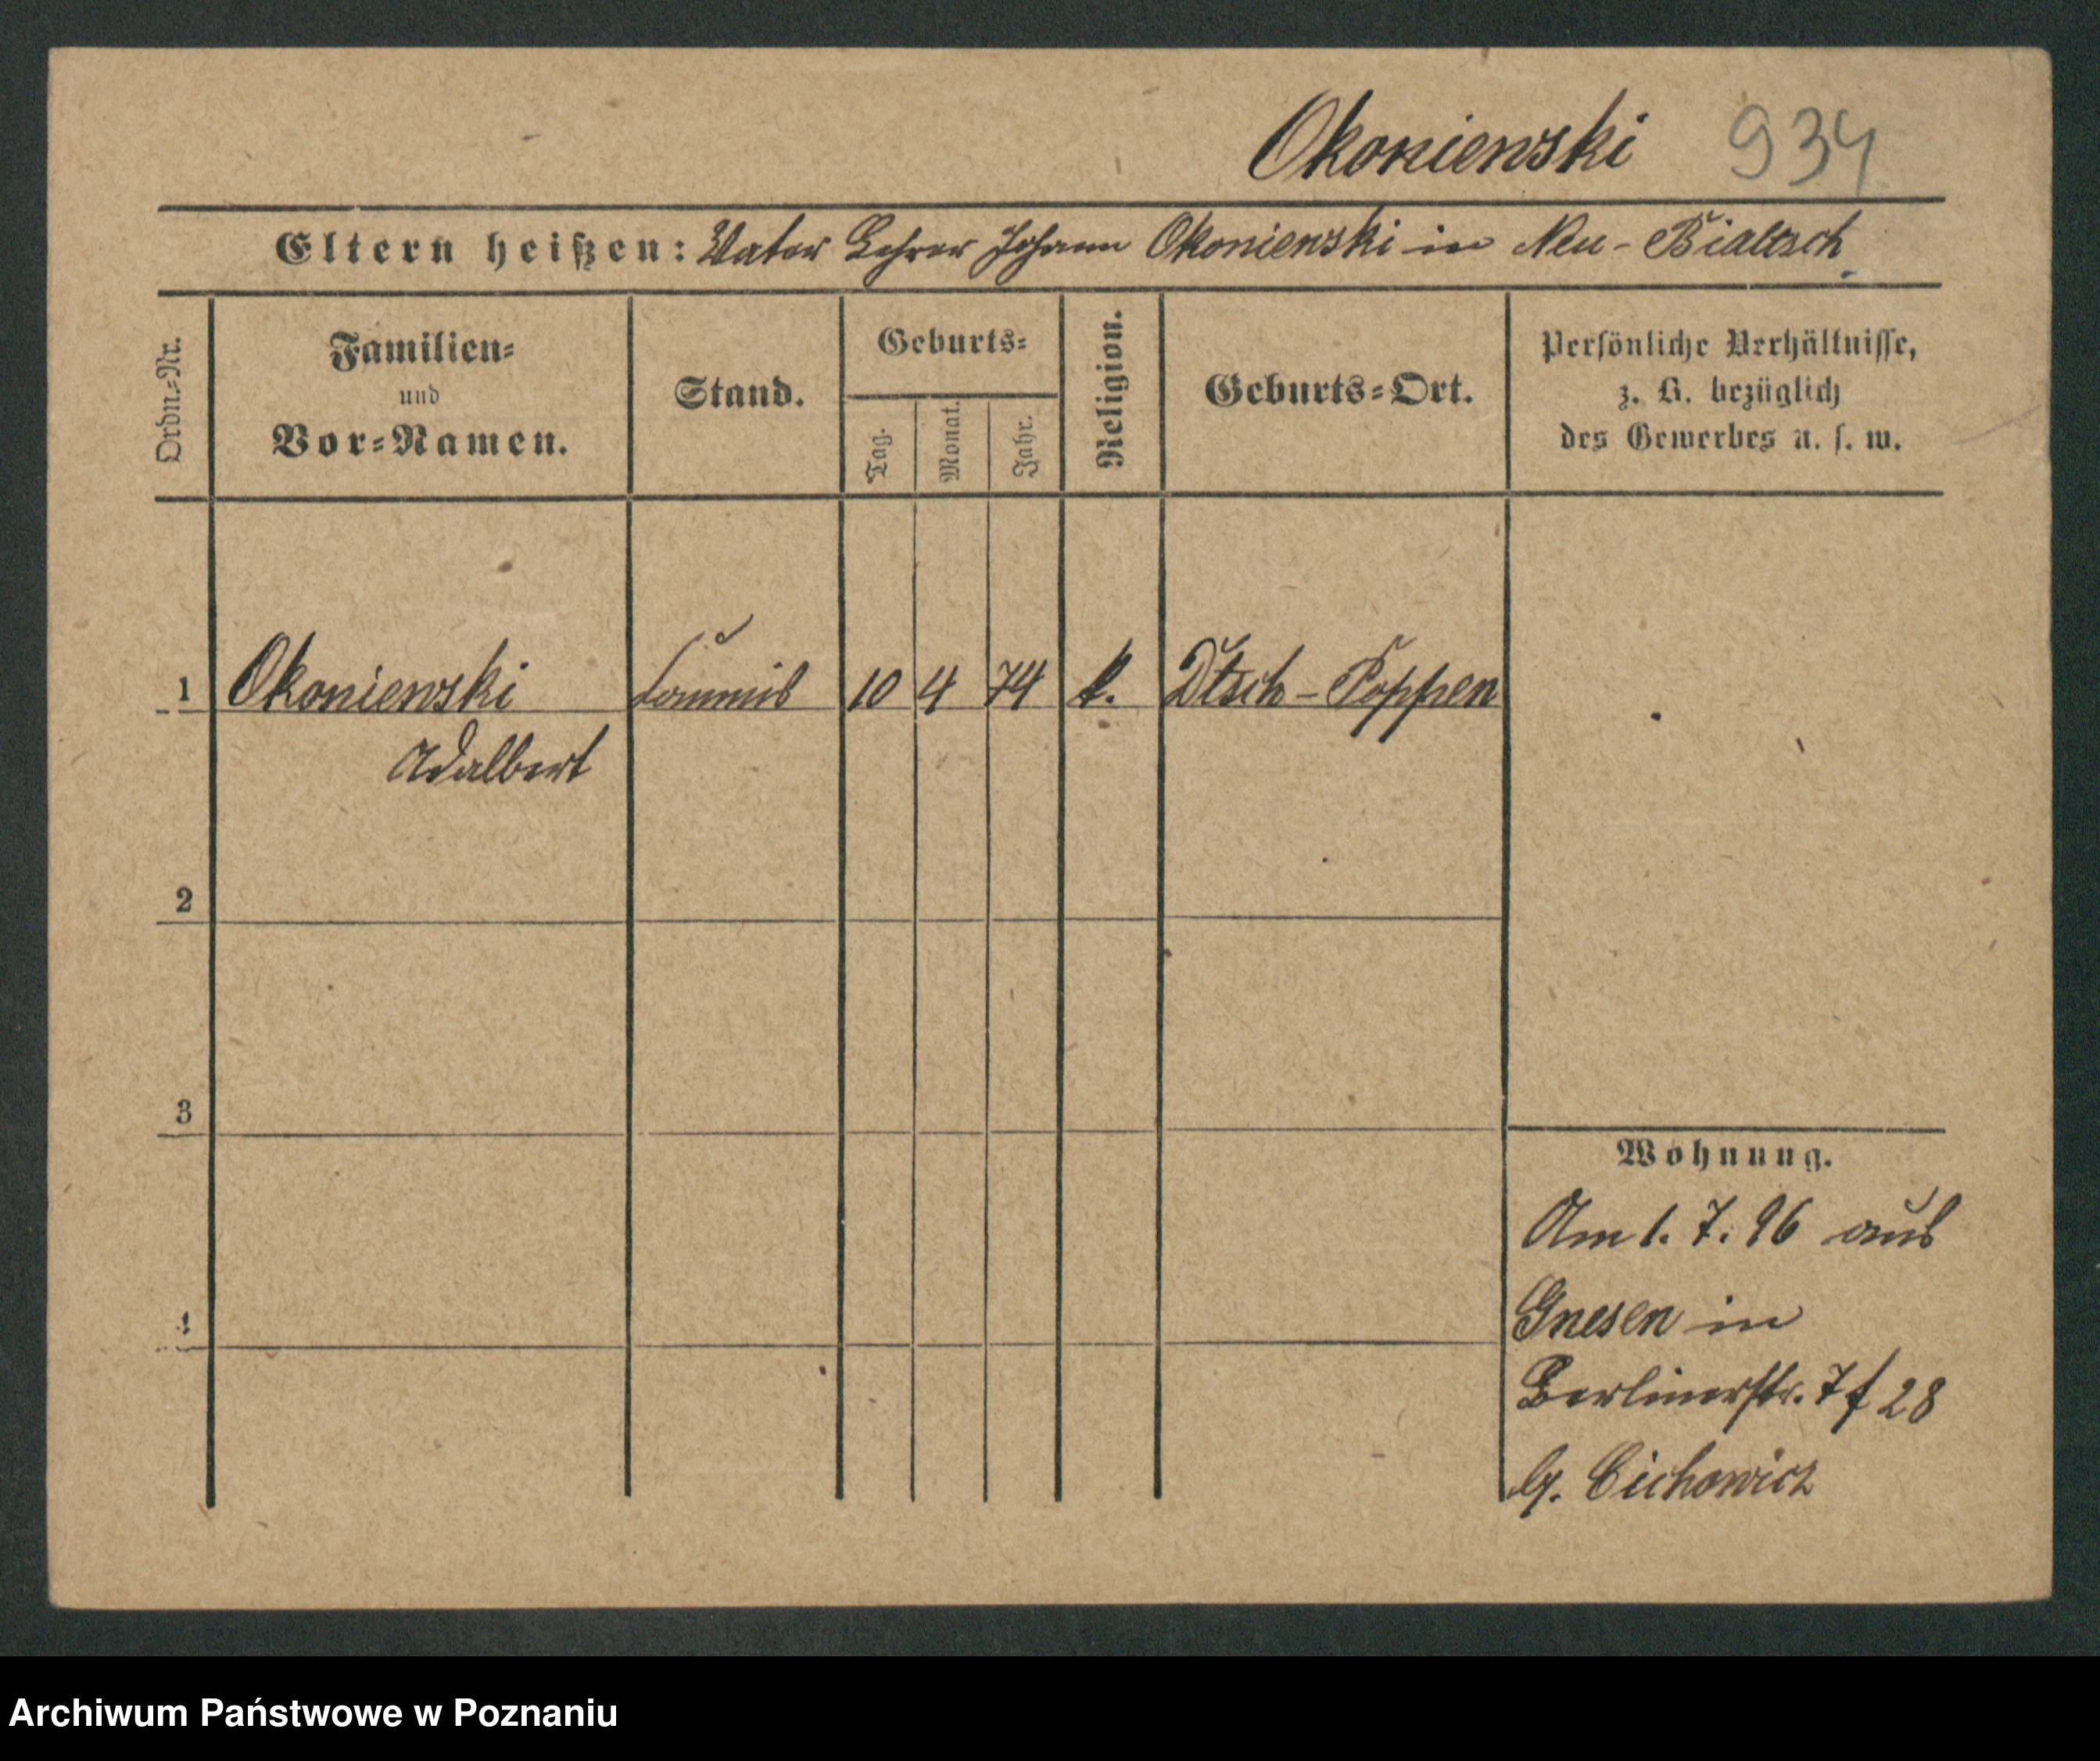 Okoniewski 934
Eltern heißen: Vater Lehrer Johann Okoniewski in Neu-Bialtsch
Ordn.-Nr.
Familien-
und
Vor-Namen.
Stand.
Geburts-
Tag.
Monat.
Jahr.
Religion.
Geburts-Ort.
Persönliche Verhältnisse,
z. B. bezüglich
des Gewerbes u. s. w.
1 Okoniewski 10 4 74 k. Dtsch-Poppen
Adalbert
2
3
4
Wohnung.
Am 1. 7. 96 aus
Gnesen in
Berlinerstr. 7 f 28
Cichowicz
Archiwum Państwowe w Poznaniu